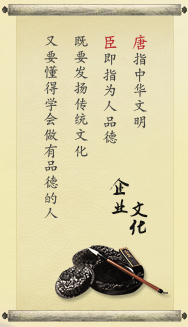 唐指中华文明
臣即指为人品德
既要发扬传统文化
又要懂得学会做有品德的人
企业
文化